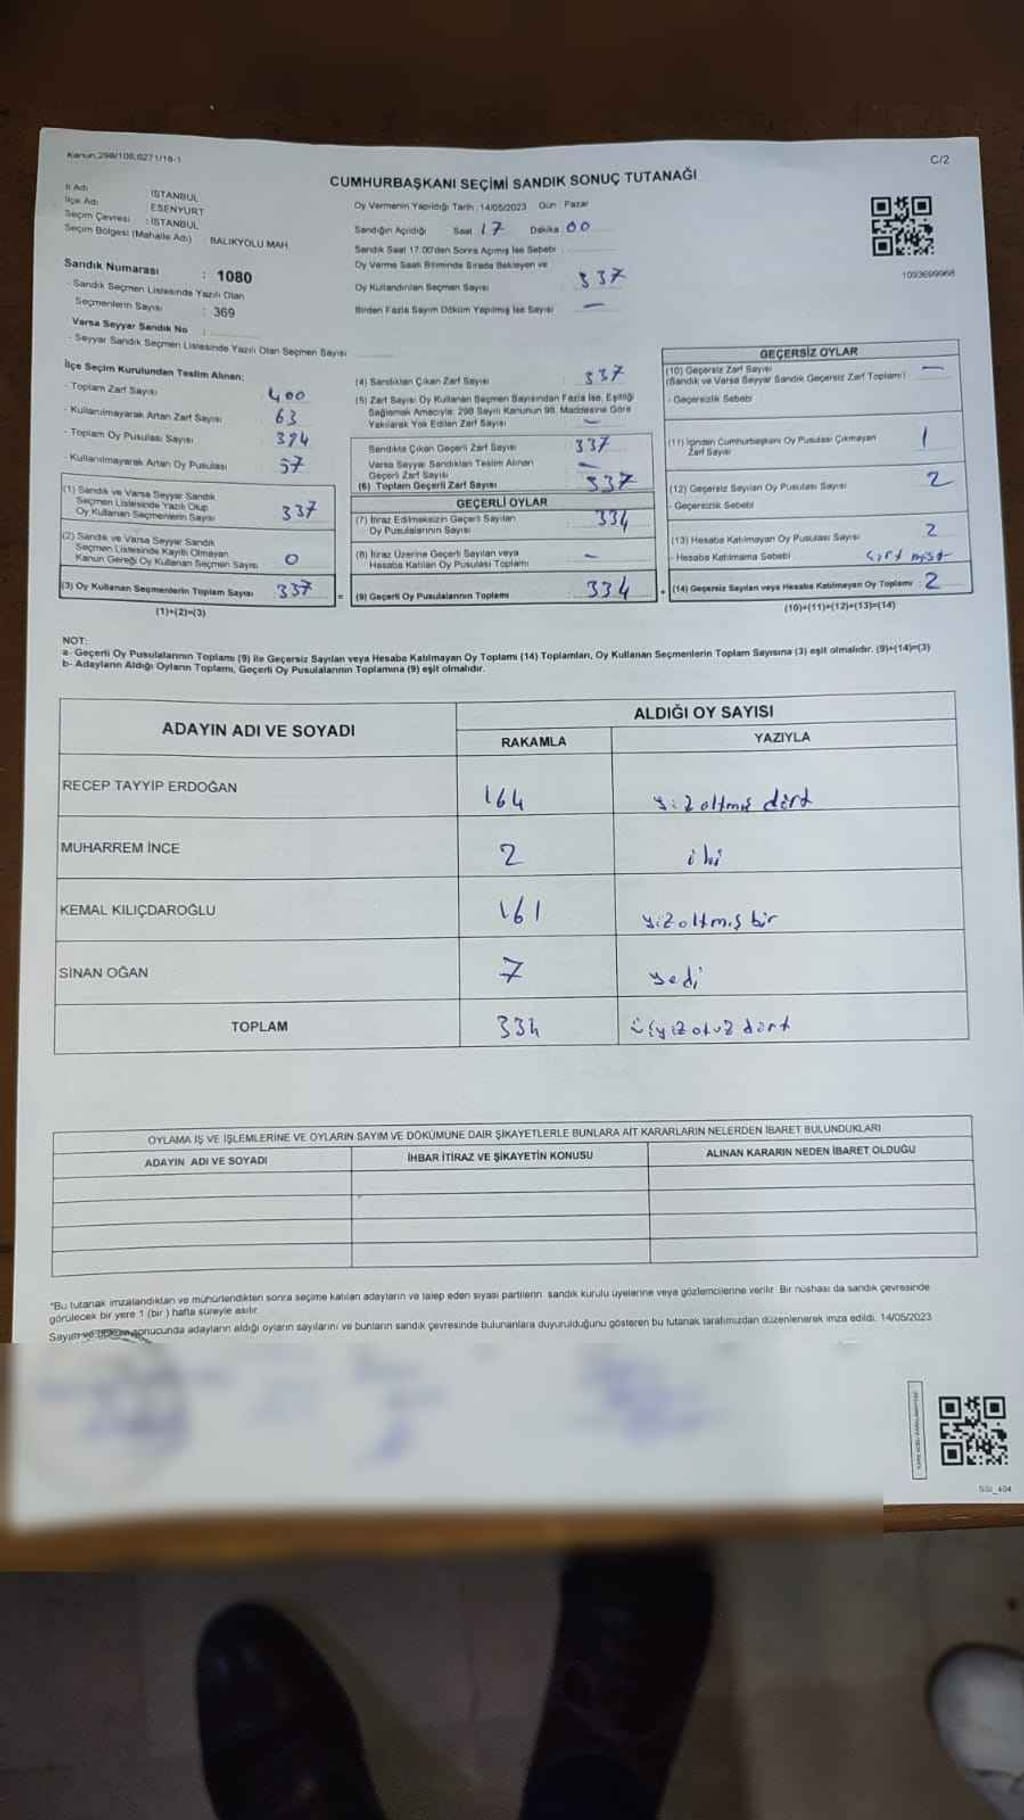 Kanun:298/108,6271/18-1
C/2
CUMHURBAŞKANI SEÇİMİ SANDIK SONUÇ TUTANAĞI
İl Adı : İSTANBUL
İlçe Adı : ESENYURT
Seçim Çevresi : İSTANBUL
Seçim Bölgesi (Mahalle Adı) BALIKYOLU MAH.
Sandık Numarası : 1080
- Sandık Seçmen Listesinde Yazılı Olan
Seçmenlerin Sayısı : 369
Varsa Seyyar Sandık No :
- Seyyar Sandık Seçmen Listesinde Yazılı Olan Seçmen Sayısı
Oy Vermenin Yapıldığı Tarih: 14/05/2023 Gün : Pazar
Sandığın Açıldığı Saat: 17 Dakika 00
Sandık Saat 17:00'den Sonra Açılmış İse Sebebi
Oy Verme Saati Bitiminde Sırada Bekleyen ve
Oy Kullandırılan Seçmen Sayısı 337
Birden Fazla Sayım Döküm Yapılmış İse Sayısı —
1093699968
İlçe Seçim Kurulundan Teslim Alınan:
- Toplam Zarf Sayısı 400
- Kullanılmayarak Artan Zarf Sayısı 63
- Toplam Oy Pusulası Sayısı 394
- Kullanılmayarak Artan Oy Pusulası 57
(1) Sandık ve Varsa Seyyar Sandık
Seçmen Listesinde Yazılı Olup
Oy Kullanan Seçmenlerin Sayısı 337
(2) Sandık ve Varsa Seyyar Sandık
Seçmen Listesinde Kayıtlı Olmayan
Kanun Gereği Oy Kullanan Seçmen Sayısı 0
(3) Oy Kullanan Seçmenlerin Toplam Sayısı 337
(1)+(2)=(3)
(4) Sandıktan Çıkan Zarf Sayısı : 337
(5) Zarf Sayısı Oy Kullanan Seçmen Sayısından Fazla İse, Eşitliği
Sağlamak Amacıyla, 298 Sayılı Kanunun 98. Maddesine Göre
Yakılarak Yok Edilen Zarf Sayısı —
Sandıkta Çıkan Geçerli Zarf Sayısı 337
Varsa Seyyar Sandıktan Teslim Alınan
Geçerli Zarf Sayısı —
(6) Toplam Geçerli Zarf Sayısı 337
GEÇERLİ OYLAR
(7) İtiraz Edilmeksizin Geçerli Sayılan
Oy Pusulalarının Sayısı 334
(8) İtiraz Üzerine Geçerli Sayılan veya
Hesaba Katılan Oy Pusulası Toplamı —
(9) Geçerli Oy Pusulalarının Toplamı 334
GEÇERSİZ OYLAR
(10) Geçersiz Zarf Sayısı —
(Sandık ve Varsa Seyyar Sandık Geçersiz Zarf Toplamı)
- Geçersizlik Sebebi
(11) İçinden Cumhurbaşkanı Oy Pusulası Çıkmayan
Zarf Sayısı 1
(12) Geçersiz Sayılan Oy Pusulası Sayısı 2
- Geçersizlik Sebebi
(13) Hesaba Katılmayan Oy Pusulası Sayısı 2
- Hesaba Katılmama Sebebi
(14) Geçersiz Sayılan veya Hesaba Katılmayan Oy Toplamı : 2
(10)+(11)+(12)+(13)=(14)
NOT:
a- Geçerli Oy Pusulalarının Toplamı (9) ile Geçersiz Sayılan veya Hesaba Katılmayan Oy Toplamı (14) Toplamları, Oy Kullanan Seçmenlerin Toplam Sayısına (3) eşit olmalıdır. (9)+(14)=(3)
b- Adayların Aldığı Oyların Toplamı, Geçerli Oy Pusulalarının Toplamına (9) eşit olmalıdır.
ADAYIN ADI VE SOYADI
ALDIĞI OY SAYISI
RAKAMLA YAZIYLA
RECEP TAYYİP ERDOĞAN 164 yüzaltmış dört
MUHARREM İNCE 2 iki
KEMAL KILIÇDAROĞLU 161 yüzaltmış bir
SİNAN OĞAN 7 yedi
TOPLAM 334 üçyüzotuz dört
OYLAMA İŞ VE İŞLEMLERİNE VE OYLARIN SAYIM VE DÖKÜMÜNE DAİR ŞİKAYETLERLE BUNLARA AİT KARARLARIN NELERDEN İBARET BULUNDUKLARI
ADAYIN ADI VE SOYADI İHBAR İTİRAZ VE ŞİKAYETİN KONUSU ALINAN KARARIN NEDEN İBARET OLDUĞU
*Bu tutanak imzalandıktan ve mühürlendikten sonra seçime katılan adayların ve talep eden siyasi partilerin sandık kurulu üyelerine veya gözlemcilerine verilir. Bir nüshası da sandık çevresinde
görülecek bir yere 1 (bir ) hafta süreyle asılır.
Sayım ve döküm sonucunda adayların aldığı oyların sayılarını ve bunların sandık çevresinde bulunanlara duyurulduğunu gösteren bu tutanak tarafımızdan düzenlenerek imza edildi. 14/05/2023